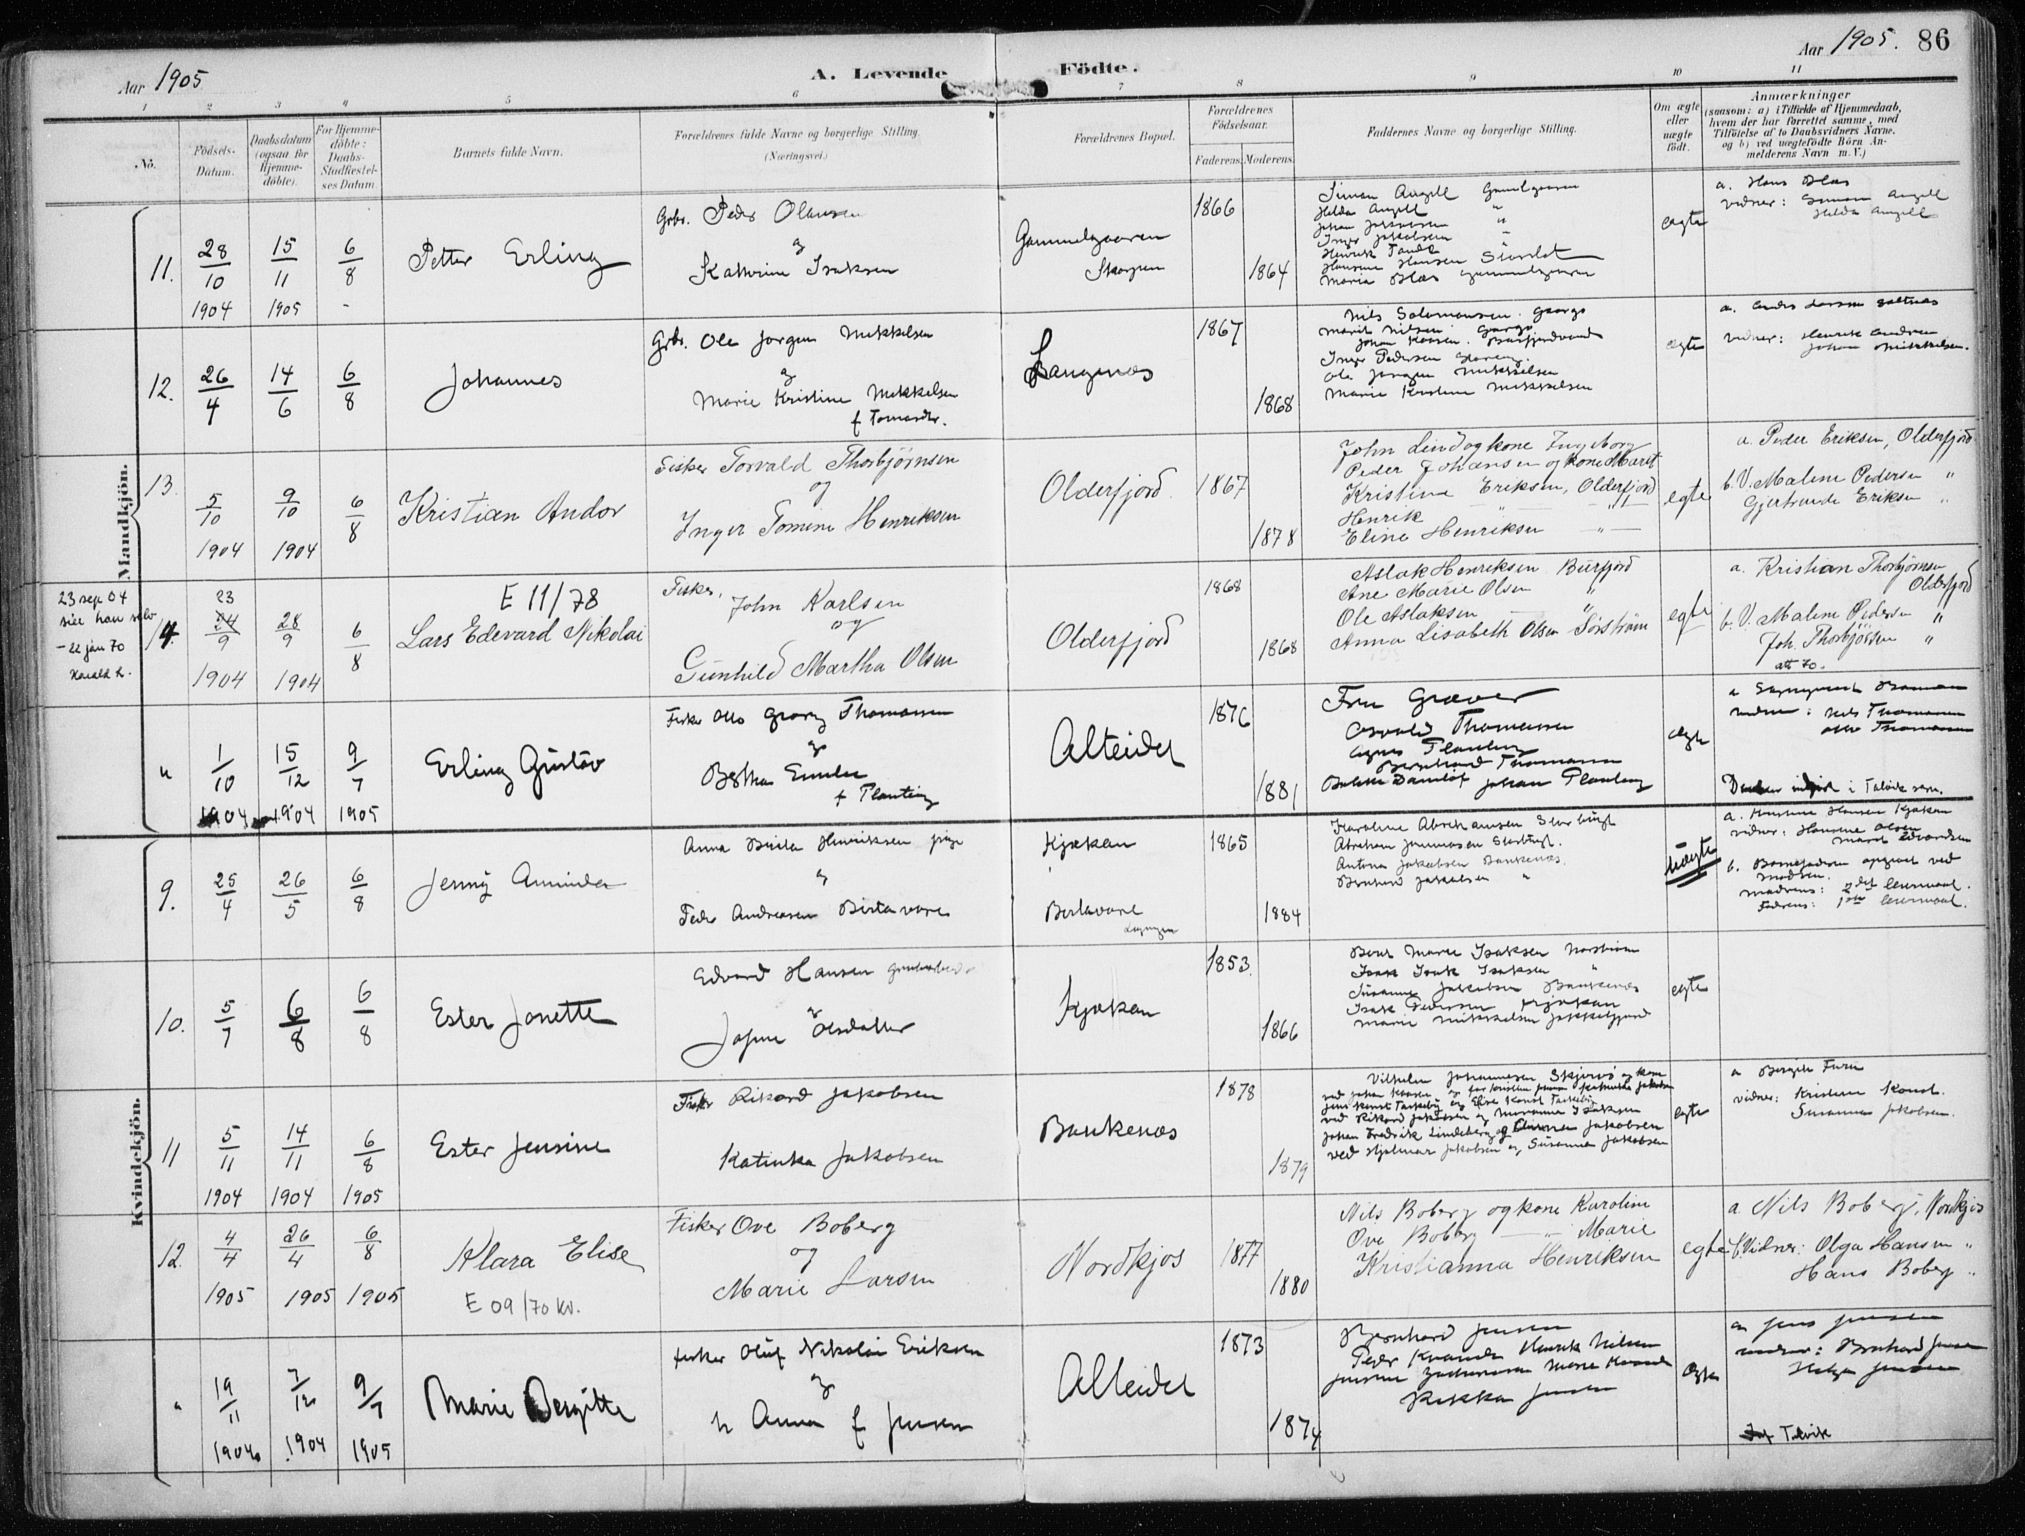 Aar 1905
A. Levende Födte.
Aar 1905. 86
1 2 3 4 5 6 7 8 9 10 11
No.
Födsels-Datum.
Daabsdatum (ogsaa for Hjemme-döbte).
For Hjemme-döbte: Daabs-Stadfæstel-ses Datum
Barnets fulde Navn.
Forældrenes fulde Navne og borgerlige Stilling.
(Næringsvei.)
Forældrenes Bopæl.
Forældrenes Födselsaar.
Faderens. Moderens.
Faddernes Navne og borgerlige Stilling.
Om ægte eller uægte födt.
Anmærkninger
(saasom: a) i Tilfælde af Hjemmedaab,
hvem der har forrettet samme, med
Tilföielse af to Daabsvidners Navne.
og b) ved uægtefödte Börn An-
melderens Navn m. V.)
Mandkjön.
11. 28/10 1904 15/11 1905 6/8 -
Petter Erling
Grbr. Peder Olausen
og
Kathrine Isaksen
Gammelgaarden
Skogen
1866
1864
Simon Angell Gammelgaarden
Hilda Angell "
Johan "
Inger Jakobsen "
Henrik
Hansine Hansen
Maria Blæs Gammelgaarden
egte
a. Hans Blæs
vidner: Simon Angell
Hilda Angell
12. 26/4 14/6 6/8
Johannes
Grbr. Ole Jørgen Mikkelsen
og
Marie Kristine Mikkelsen
f Tomasdtr.
Langnæs
1867
1868
Nils Salomonsen. Gargo
Marit Nilsen. Gargo
Johan
Inger Pedersen
Ole Jørgen Mikkelsen
Marie Kristine Mikkelsen
egte
a. Anders Larssen
vidner: Henrik Andersen
Johan Mikkelsen.
13. 5/10 1904 9/10 1904 6/8
Kristian Andor
Fisker Torvald Thorbjørnsen
og
Inger Tomine Henriksen
Olderfjord.
1867
1878
John Lind og kone Ingeborg
Peder Johansen og kone Marit
Kristina Eriksen, Olderfjord
Henrik
Eline Henriksen — " —
egte
a. Peder Eriksen, Olderfjord
b. V. Malene Pedersen "
Gjertrude Eriksen "
23 sep 04
sier han selv
- 22 jan 70
Harald L.
14. 23 24/9 1904 28/9 1904 6/8
E 11/78
Lars Edevard Nikolai
Fisker,
John Karlsen
og
Gunhild Martha Olsen
Olderfjord
1868
1868
Aslak Henriksen Burfjord
Ane Marie Olsen "
Ole Aslaksen — "
Anna Lisabeth Olsen Sørstrøm
egte
a. Kristian Thorbjørnsen
Olderfjord
b. V. Malene Pedersen "
Joh. Thorbjørnsen "
att 70.
" 1/10 1904 15/12 1904 9/7 1905
Erling Gustav
Fisker Otto Georg Thomassen
og
Bertha Emilie
f Planting
Alteidet
1876
1881
Fru Græver
Osvald Thomassen
Agnes Planting
Bernhard Thomassen
Johan Planting
egte
a
vidner: Nils Thomassen
Otto Thomassen
i Talvik
Kvindekjön.
9. 25/4 26/5 6/8
Jenny Aminda
Anna Birita Henriksen pige
og
Peder Andreasen Birtavare
Kjækan
Birtavare
Lyngen
1865
1884
Karoline Abrahamsen Storbugt
Abraham Storbugt.
Antina Jakobsen Baukenæs.
Bernhard Jakobsen "
Uægte
a. Kristine Hansen Kjækan
vidner: Hansine Olsen
Marit Edvardsen
b. Barnefaderen opgivet ved
Modren.
Modrens: 2det leiermaal.
Fadrens: 1ste leiermaal.
10. 5/7 6/8 6/8
Ester Jonette
Edvard Hansen
og
Jofine Olsdatter
Kjækan
1853.
1866
Berit Marie Isaksen
Isak Isak Isaksen "
Susanne Jakobsen Baukenæs
Isak Pedersen Kjækan
Marie Mikkelsen Jøkkelfjord
egte
11 5/11 1904 14/11 1904 6/8 1905
Ester Jensine
Fisker Rikard Jakobsen
Katinka Jakobsen
Baukenæs
1878
1879
Vilhelm Johannesen Skjervø og kone
ved Rikard Jakobsen og Marianne Isaksen
Johan Fredrik Lindeberg og Jakobsen
ved Hjalmar Jakobsen og Susanna Jakobsen
egte
a Bergith Furu
vidner: Kristine Konst.
Susanna Jakobsen.
12. 4/4 1905 26/4 1905 6/8 1905
Klara Elise
E 09/70 kv.
Fisker Ove Boberg
og
Marie Larsen
Nordkjos
1877
1880
Nils Boberg og kone Karoline
Ove Boberg — " — Marie
Kristianna Henriksen
egte
a. Nils Boberg, Nordkjos
b. Vidner: Olga Hansen "
Hans Boberg "
" 19/11 1904 7/12 1904 9/7 1905
Marie Bergitte
fisker Oluf Nikolai Eriksen
og
h Anna f Jensen
Alteidet
1873
1874
Bernhard Jensen
Peder Kvande Henrik Nilsen
Jensine Zachariassen Marie Kvande
Rikka Jensen
Egte
a. Jens Jensen
vidner: Bernhard Jensen
Helga Jensen
Talvik